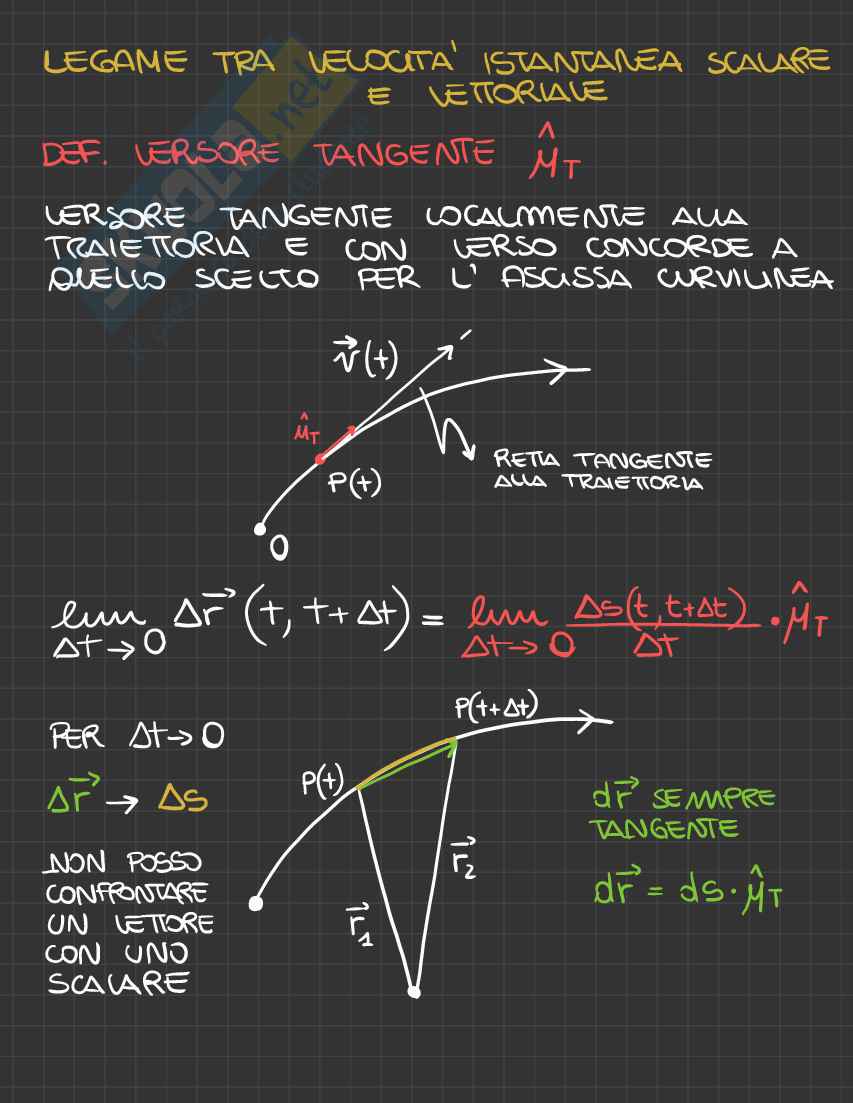 LEGAME TRA VELOCITA' ISTANTANEA SCALARE
E VETTORIALE
DEF. VERSORE TANGENTE û_T
VERSORE TANGENTE LOCALMENTE ALLA
TRAIETTORIA E CON VERSO CONCORDE A
QUELLO SCELTO PER L'ASCISSA CURVILINEA
v⃗(t)
û_T
P(t)
RETTA TANGENTE
ALLA TRAIETTORIA
O
lim Δt→0 Δr⃗ (t, t+Δt) = lim Δt→0 Δs(t, t+Δt)/Δt · û_T
P(t+Δt)
PER Δt→0
P(t)
Δr⃗ → Δs
dr⃗ SEMPRE
TANGENTE
NON POSSO
CONFRONTARE
UN VETTORE
CON UNO
SCALARE
r⃗₂
dr⃗ = ds · û_T
r⃗₁
SKUOLA.net